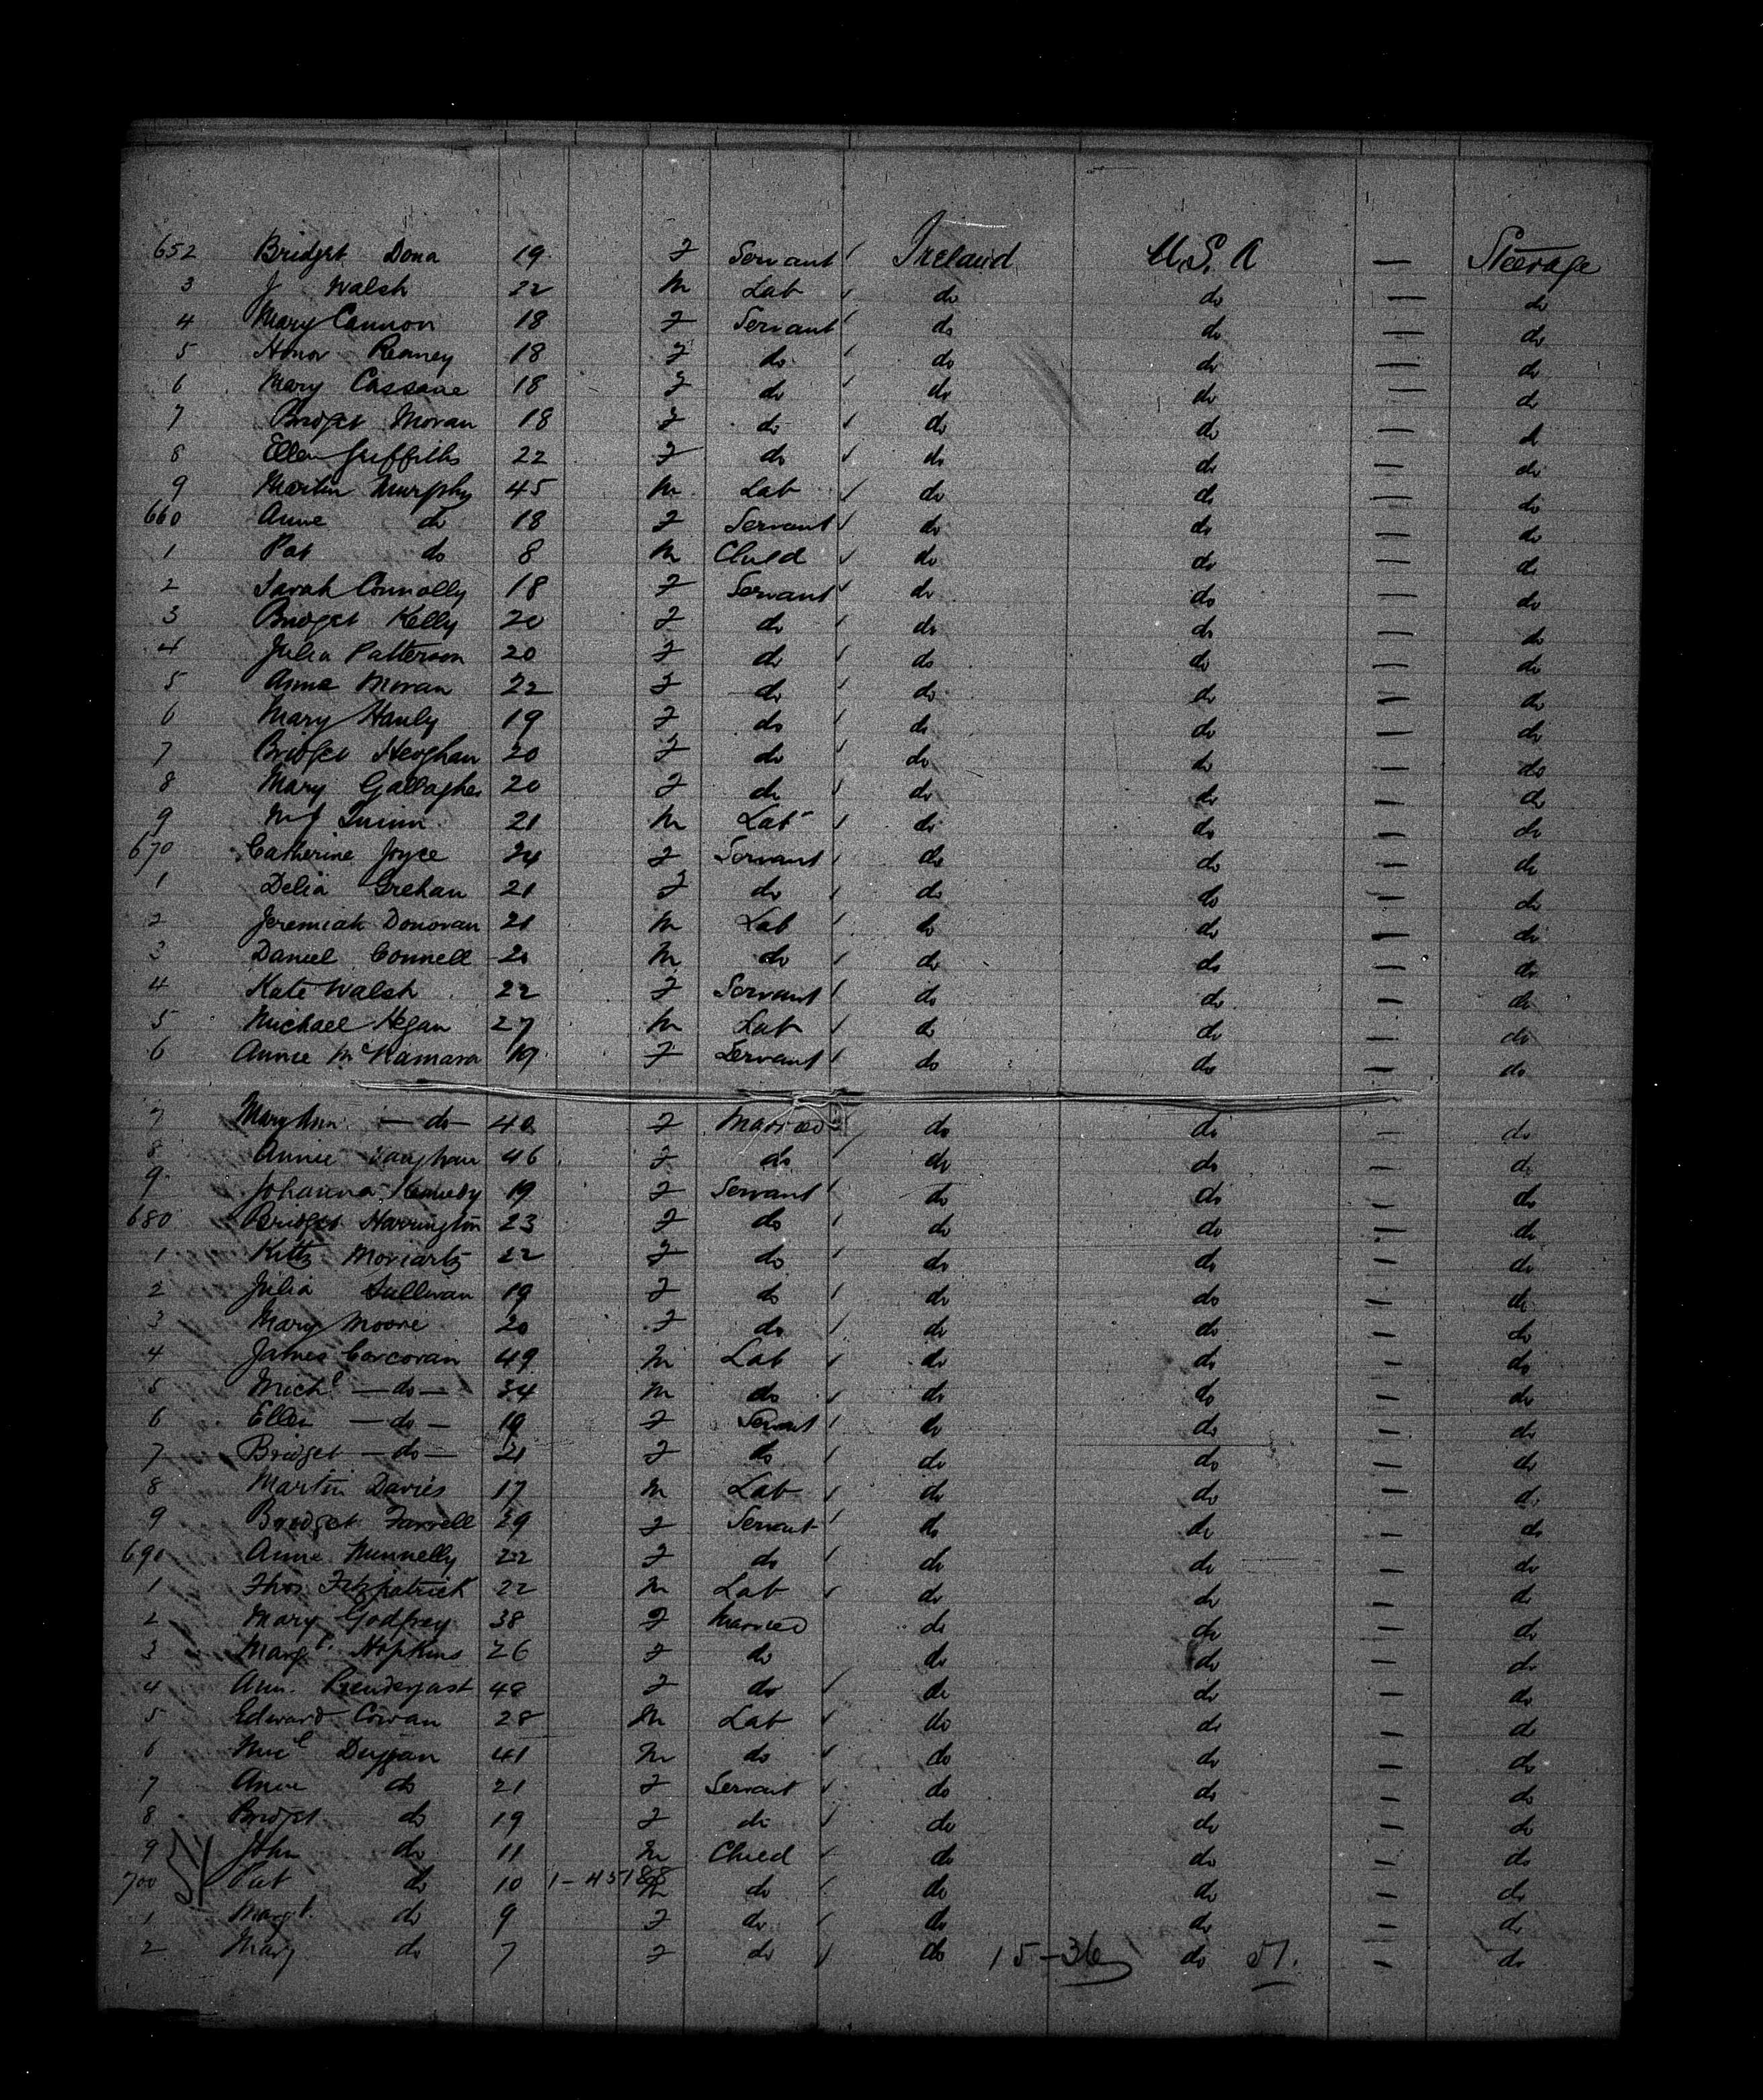 652 Bridget Dona 19 F Servant Ireland U.S.A — Steerage
3 J Walsh 22 M Lab do do — do
4 Mary Cannon 18 F Servant do do — do
5 Honor Reaney 18 F do do do — do
6 Mary Cassane 18 F do do do — do
7 Bridget Moran 18 F do do do — do
8 Ellen Griffiths 22 F do do do — do
9 Martin Murphy 45 M Lab do do — do
660 Anne do 18 F Servant do do — do
1 Pat do 8 M Child do do — do
2 Sarah Connolly 18 F Servant do do — do
3 Bridget Kelly 20 F do do do — do
4 Julia Patterson 20 F do do do — do
5 Anne Moran 22 F do do do — do
6 Mary Hanly 19 F do do do — do
7 Bridget Heoghan 20 F do do do — do
8 Mary Gallagher 20 F do do do — do
9 M J Quinn 21 M Lab do do — do
670 Catherine Joyce 24 F Servant do do — do
1 Delia Grehan 21 F do do do — do
2 Jeremiah Donovan 21 M Lab do do — do
3 Daniel Connell 20 M do do do — do
4 Kate Walsh 22 F Servant do do — do
5 Michael Hegan 27 M Lab do do — do
6 Annie McNamara 19 F Servant do do — do
7 Mary Ann — do — 40 F Married do do — do
8 Annie Vaughan 46 F do do do — do
9 Johanna Kennedy 19 F Servant do do — do
680 Bridget Harrington 23 F do do do — do
1 Kitty Moriarty 22 F do do do — do
2 Julia Sullivan 19 F do do do — do
3 Mary Moore 20 F do do do — do
4 James Corcoran 49 M Lab do do — do
5 Michl — do — 34 M do do do — do
6 Ellen — do — 19 F Servant do do — do
7 Bridget — do — 21 F do do do — do
8 Martin Davies 17 M Lab do do — do
9 Bridget Farrell 29 F Servant do do — do
690 Anne Nunnelly 22 F do do do — do
1 Thos Fitzpatrick 22 M Lab do do — do
2 Mary Godfrey 38 F Married do do — do
3 Margt Hopkins 26 F do do do — do
4 Ann Prendergast 48 F do do do — do
5 Edward Cowan 28 M Lab do do — do
6 Micl Duggan 41 M do do do — do
7 Anne do 21 F Servant do do — do
8 Bridget do 19 F do do do — do
9 John do 11 M Child do do — do
700 Pat do 10 1-45188 M do do do — do
1 Margt do 9 F do do do — do
2 Mary do 7 F do do 15-36 do 51. — do